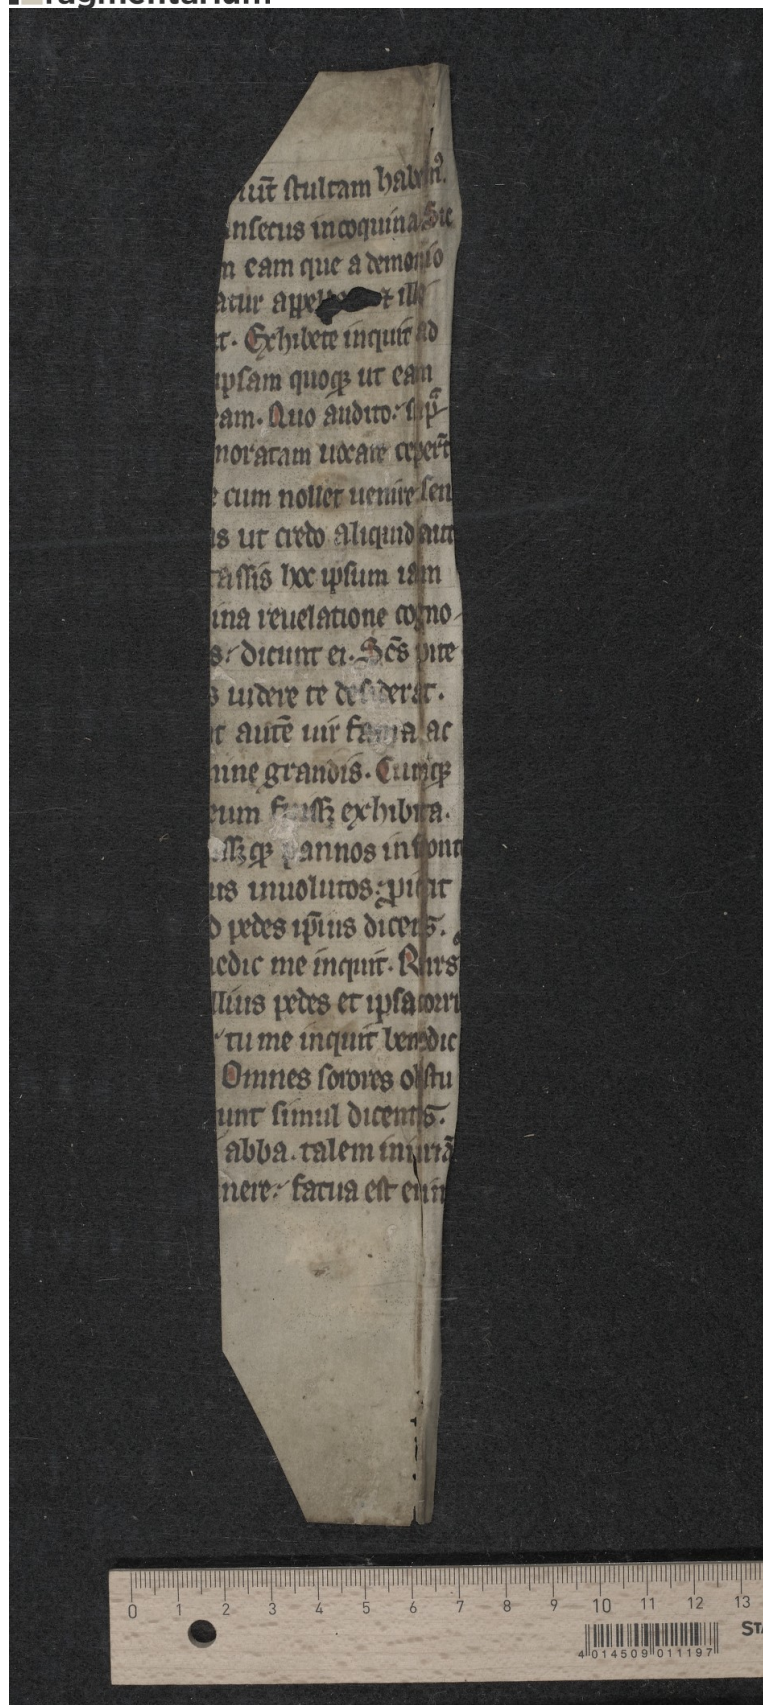 fragmentarium
iut̄ stultam habem᷒.
nsecus incoquina Sic
m eam que a demonio
atur appell et ille
t. Exhibete inquit ad
ipsam quoqꝫ ut eam
eam. Quo audito: sup̄
noratam uocare ceper̄t
e cum nollet uenire sen
is ut credo aliquid aut
tassis hoc ipsum iam
ina reuelatione cogno
s: dicunt ei. Sc̄s pite
s uidere te desiderat.
t autē uir fama ac
mine grandis. Cumqꝫ
eum fuissꝫ exhibita.
issꝫqꝫ pannos infront
us inuolutos: picit
d pedes ip̄ius dicens.
nedic me inquit. Rurs᷒
illius pedes et ipsa corri
tu me inquit benedic
Omnes sorores obstu
unt simul dicentes.
abba. talem iniuriā
nere: fatua est enim
0 1 2 3 4 5 6 7 8 9 10 11 12 13
4 014509 011197